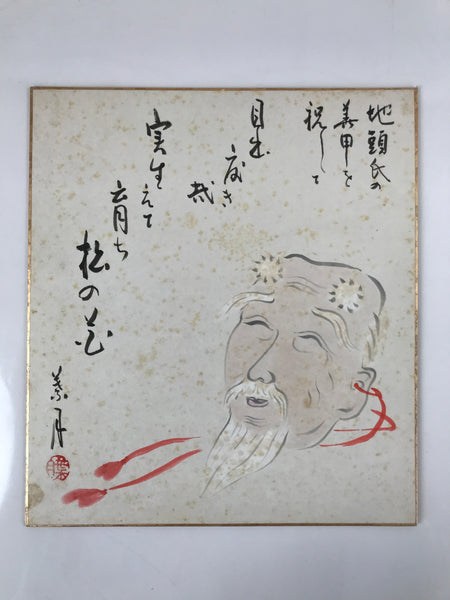 地頭氏の
華甲を
祝して
目出
度き
哉
実生えて
育ち
松の花